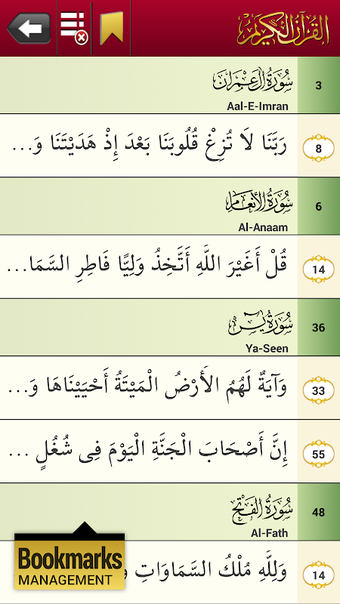 القرآن الكريم
سورة آل عمران
3
Aal-E-Imran
رَبَّنَا لَا تُزِغْ قُلُوبَنَا بَعْدَ إِذْ هَدَيْتَنَا وَ...
8
سورة الأنعام
6
Al-Anaam
قُلْ أَغَيْرَ اللَّهِ أَتَّخِذُ وَلِيًّا فَاطِرِ السَّمَا...
14
سورة يس
36
Ya-Seen
وَآيَةٌ لَهُمُ الْأَرْضُ الْمَيْتَةُ أَحْيَيْنَاهَا وَ...
33
إِنَّ أَصْحَابَ الْجَنَّةِ الْيَوْمَ فِي شُغُلٍ ...
55
سورة الفتح
48
Al-Fath
وَلِلَّهِ مُلْكُ السَّمَاوَاتِ وَ
14
Bookmarks
MANAGEMENT